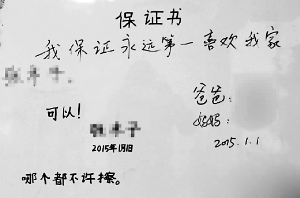 保证书
我保证永远第一喜欢我家
可以！
爸爸：
妈妈：
2015.1.1
2015年1月1日
哪个都不许擦。